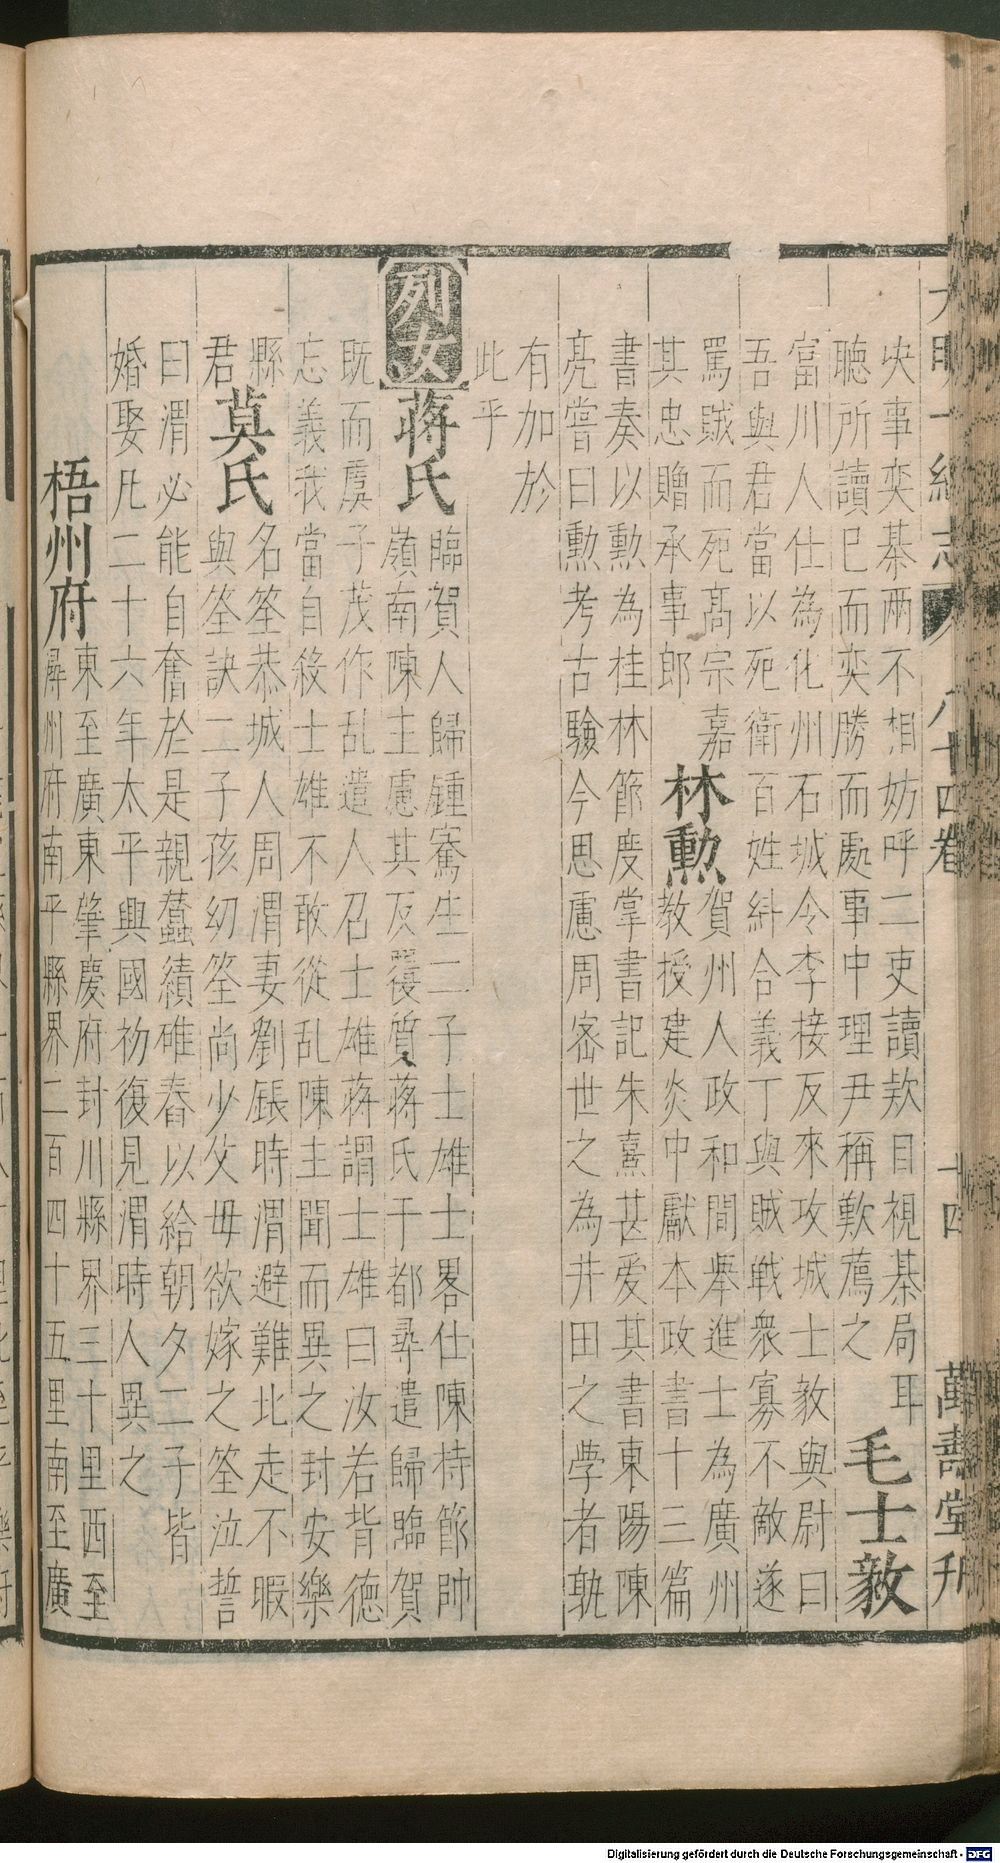 大明一統志
八十四卷
十四
萬壽堂刋
决事奕棊兩不相妨呼二吏讀欵目視棊局耳
聽所讀已而奕勝而處事中理尹稱歎薦之
毛士毅
富川人仕為化州石城令李接反來攻城士毅與尉曰
吾與君當以死衛百姓紏合義丁與賊戰衆寡不敵遂
罵賊而死高宗嘉
其忠贈承事郎
林勲
賀州人政和間舉進士為廣州
教授建炎中獻本政書十三篇
書奏以勲為桂林節度掌書記朱熹甚愛其書東陽陳
亮嘗曰勲考古驗今思慮周宻世之為井田之学者孰
有加於
此乎
列女
蔣氏
臨賀人歸鍾騫生二子士雄士畧仕陳持節帥
嶺南陳主慮其反覆質蔣氏于都尋遣歸臨賀
既而虞子茂作乱遣人召士雄蔣謂士雄曰汝若背德
忘義我當自殺士雄不敢從乱陳主聞而異之封安樂
縣
君
莫氏
名筌恭城人周渭妻劉鋹時渭避難北走不暇
與筌訣二子孩幼筌尚少父母欲嫁之筌泣誓
曰渭必能自奮於是親蠶績碓舂以給朝夕二子皆
婚娶凡二十六年太平興國初復見渭時人異之
梧州府
東至廣東肇慶府封川縣界三十里西至
潯州府南平縣界二百四十五里南至廣
Digitalisierung gefördert durch die Deutsche Forschungsgemeinschaft - DFG